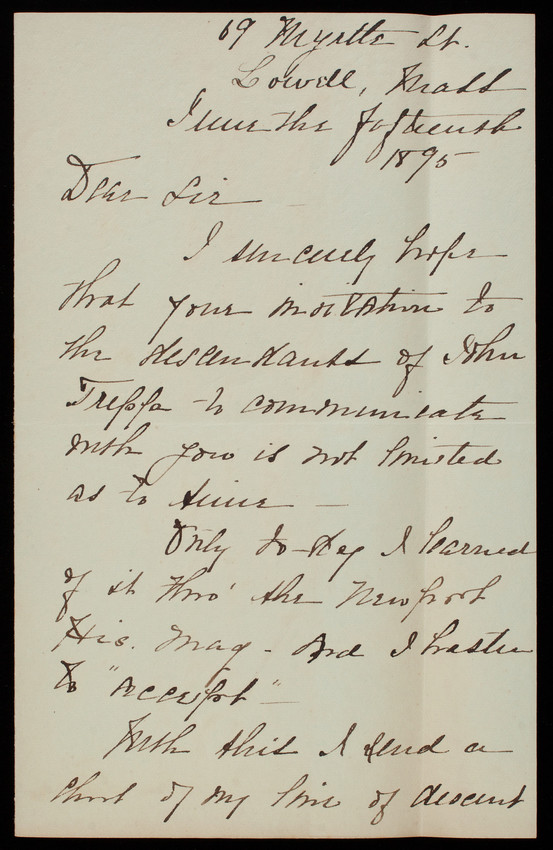 69 Myrtle St.
Lowell, Mass
June the fifteenth
1895
Dear Sir
I sincerely hope
that your invitation to
the descendants of John
Treffe to communicate
with you is not limited
as to time —
Only to-day I learned
of it thro' the Newport
His. Mag - And I hasten
to "accept" -
With this I send a
chart of my line of descent